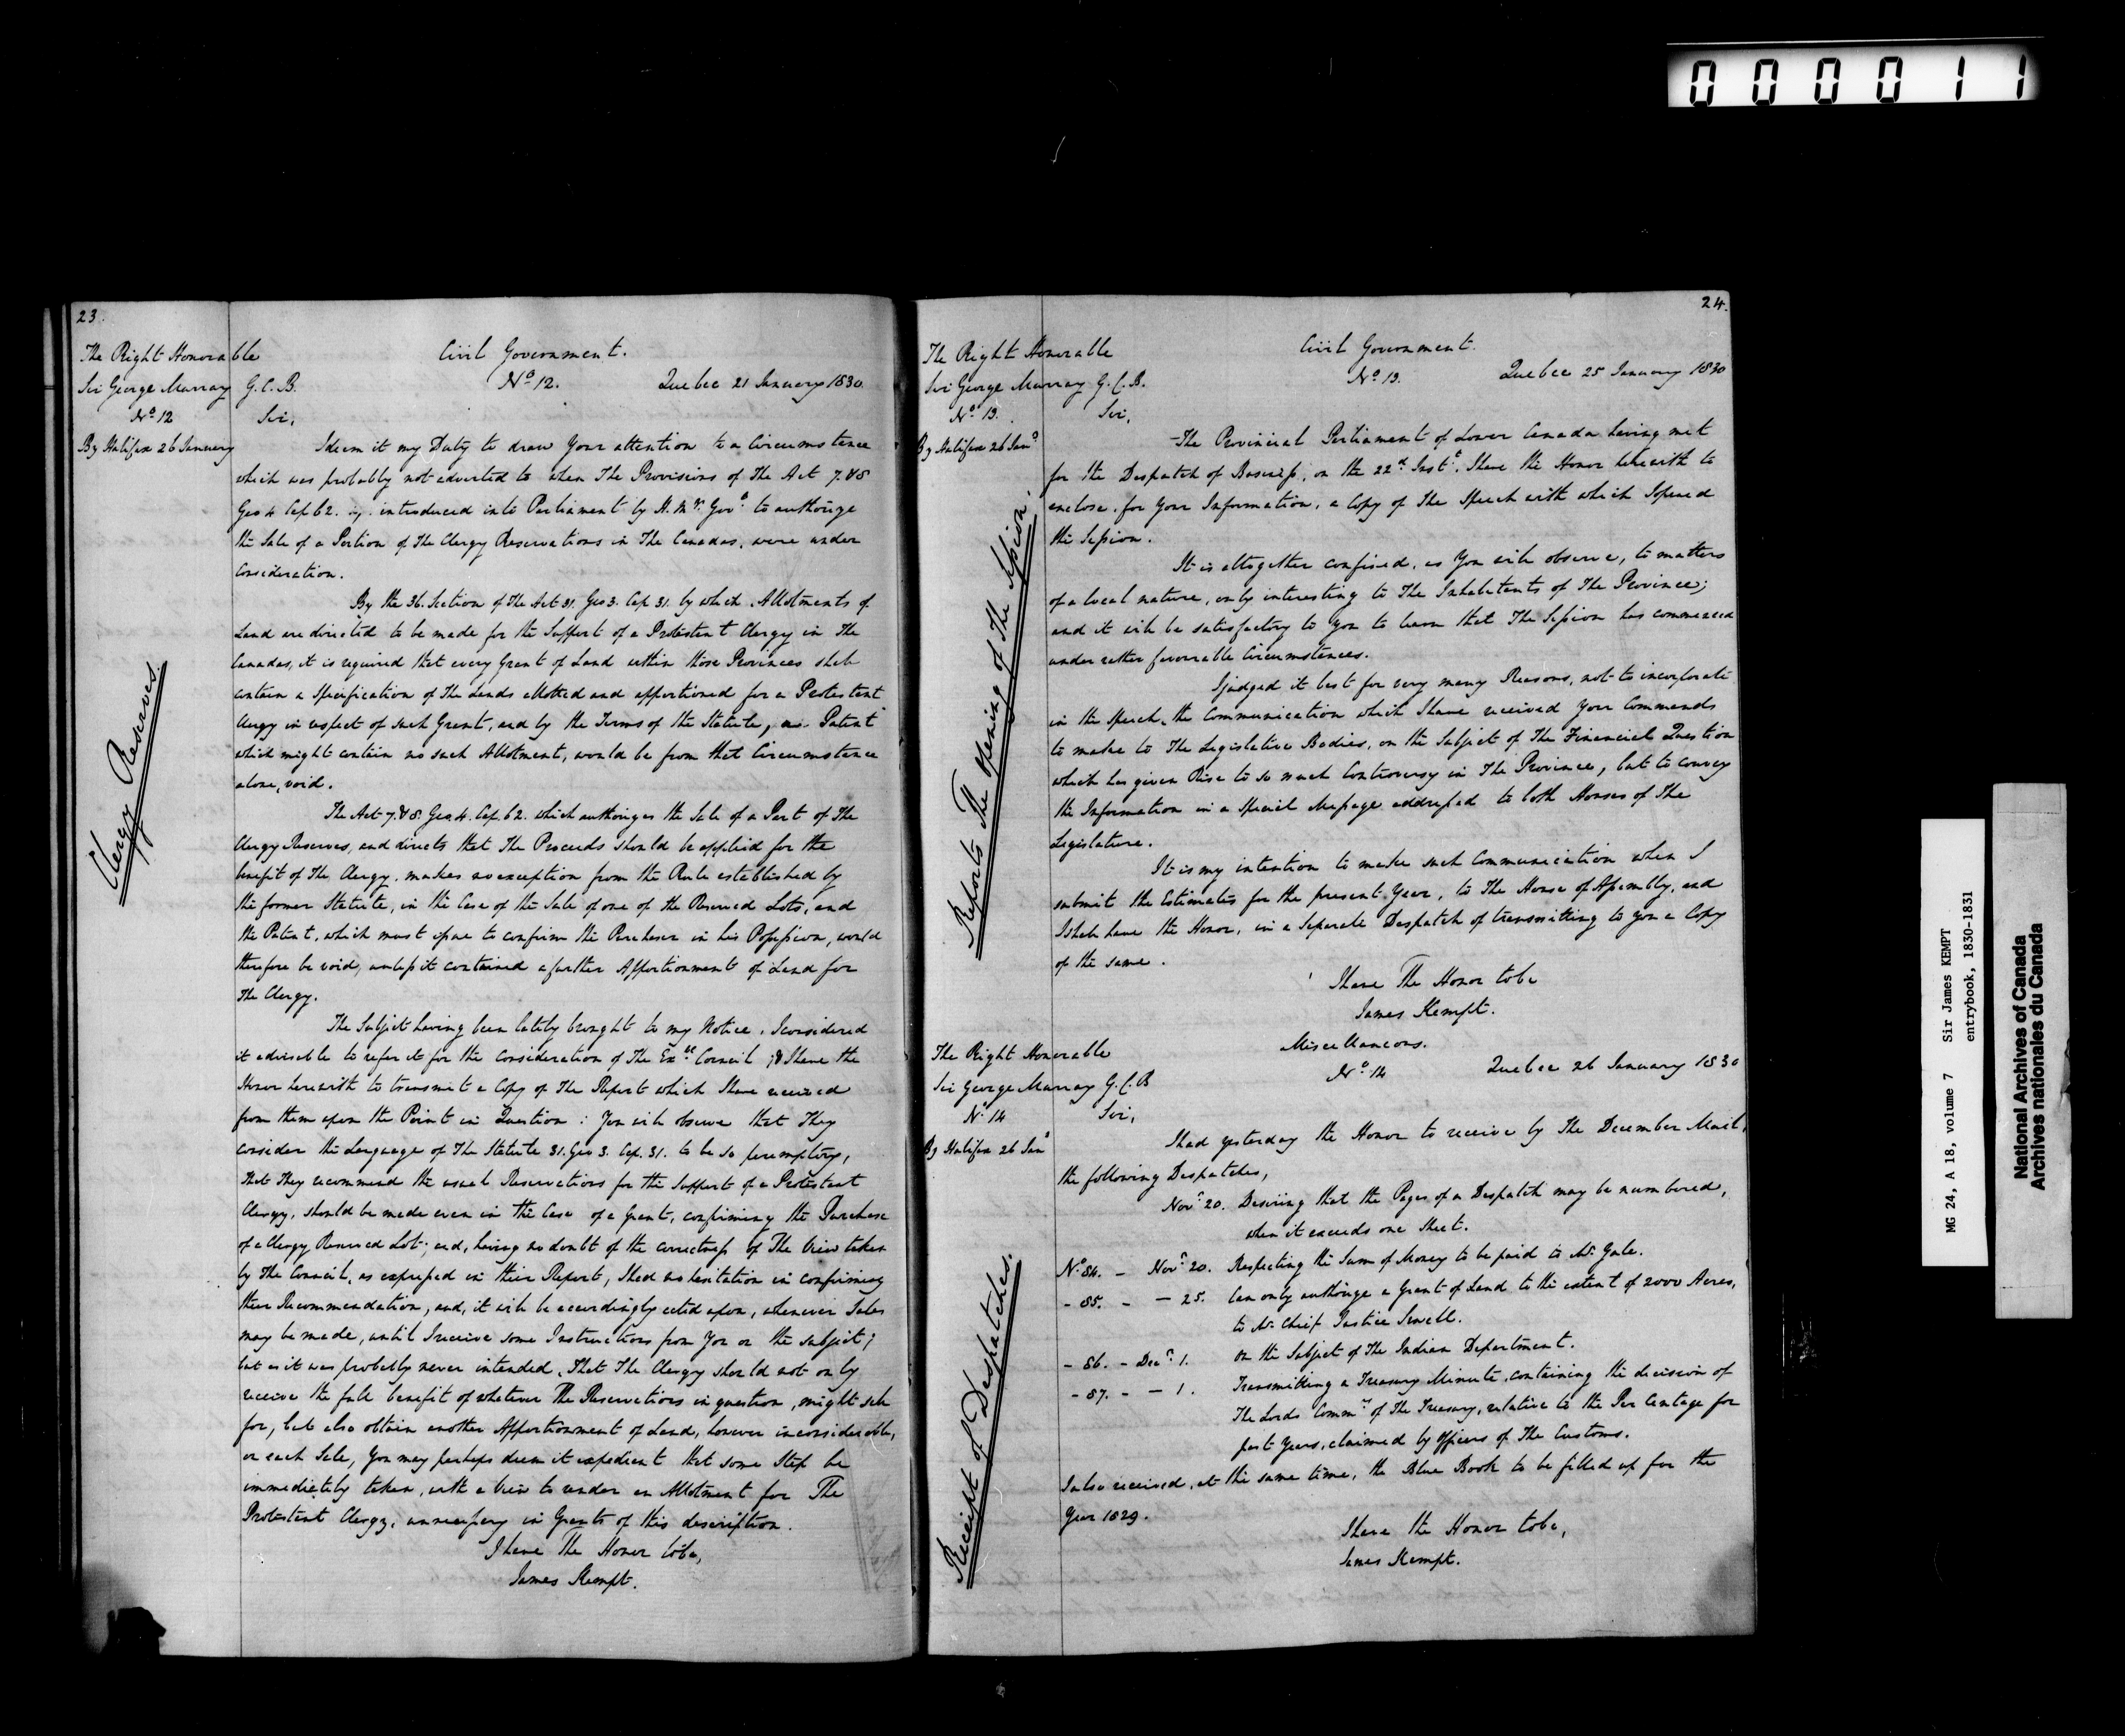 000011
23.
The Right Honorable
Sir George Murray G.C.B.
No. 12
By Halifax 26 January
Clergy Reserves.
Civil Government.
No. 12. Quebec 21 January 1830
Sir,
I deem it my Duty to draw Your attention to a Circumstance
which was probably not adverted to when The Provisions of The Act 7. & 8
Geo 4 Cap 62. introduced into Parliament by H. My. Govt. to authorize
the Sale of a Portion of The Clergy Reservations in The Canadas, were under
Consideration.
By the 36. Section of The Act 31. Geo 3. Cap 31. by which Allotments of
Land are directed to be made for the Support of a Protestant Clergy in The
Canadas, it is required that every Grant of Land within those Provinces shall
contain a Specification of The Lands allotted and apportioned for a Protestant
Clergy in respect of such Grant, and by the Terms of the Statute, a Patent
which might contain no such Allotment, would be from that Circumstance
alone, void.
The Act 7. & 8. Geo 4. Cap. 62. which authorizes the Sale of a Part of The
Clergy Reserves, and directs that The Proceeds should be applied for the
benefit of The Clergy, makes no exception from the Rule established by
the former Statute, in the Case of the Sale of one of the Reserved Lots, and
the Patent, which must issue to confirm the Purchaser in his Possession, would
therefore be void, unless it contained a further Apportionment of Land for
The Clergy.
The Subject having been lately brought to my Notice, I considered
it advisable to refer it for the consideration of The Exve. Council; & I have the
Honor herewith to transmit a Copy of The Report which I have received
from them upon the Point in Question: You will observe that They
consider the Language of The Statute 31. Geo 3. Cap. 31. to be so peremptory,
that They recommend the usual Reservations for the Support of a Protestant
Clergy, should be made even in the Case of a Grant, confirming the Purchase
of a Clergy Reserved Lot; and, having no doubt of the correctness of The View taken
by The Council, as expressed in their Report, I had no hesitation in confirming
their Recommendation, and, it will be accordingly acted upon, whenever Sales
may be made, until I receive some Instructions from You on the subject;
but as it was probably never intended, That The Clergy should not only
receive the full benefit of whatever The Reservations in question, might sell
for, but also obtain another Apportionment of Land, however inconsiderable,
on each Sale, You may perhaps deem it expedient that some Step be
immediately taken, with a View to render an Allotment for The
Protestant Clergy, unnecessary in Grants of this description.
I have The Honor to be,
James Kempt.
24.
The Right Honorable
Sir George Murray G.C.B.
No. 13.
By Halifax 26 Jany.
Reports The opening of The Session.
Civil Government.
No. 13. Quebec 25 January 1830
Sir,
The Provincial Parliament of Lower Canada having met
for the Despatch of Business, on the 22d. Instt. I have the Honor herewith to
enclose, for Your Information, a Copy of The Speech with which I opened
the Session.
It is altogether confined, as You will observe, to matters
of a local nature, only interesting to The Inhabitants of The Province;
and it will be satisfactory to You to learn that The Session has commenced
under rather favorable Circumstances.
I judged it best for very many Reasons, not to incorporate
in the Speech, the Communication which I have received Your Commands
to make to The Legislative Bodies, on the Subject of The Financial Question
which has given Rise to so much Controversy in The Province, but to convey
the Information in a Special Message addressed to both Houses of The
Legislature.
It is my intention to make such Communication when I
submit the Estimates for the present Year, to The House of Assembly, and
I shall have the Honor, in a Separate Despatch of transmitting to You a Copy
of the same.
I have The Honor to be
James Kempt.
The Right Honorable
Sir George Murray G.C.B
No. 14
By Halifax 26 Jany
Receipt of Despatches.
Miscellaneous.
No. 14 Quebec 26 January 1830
Sir,
I had yesterday the Honor to receive by The December Mail,
the following Despatches,
Novr. 20. Desiring that the Pages of a Despatch may be numbered,
when it exceeds one Sheet.
No. 84. – Novr. 20. Respecting the Sum of Money to be paid to Mr. Gale.
- 85. - – 25. Can only authorize a Grant of Land to the extent of 2000 Acres,
to Mr. Chief Justice Sewell.
- 86. - Decr. 1. On the Subject of The Indian Department.
- 87. - – 1. Transmitting a Treasury Minute, containing the decision of
The Lords Commrs. of The Treasury, relative to the Per Centage for
past Years, claimed by Officers of The Customs.
I also received, at the same time, the Blue Book to be filled up for the
Year 1829.
I have the Honor to be,
James Kempt.
MG 24, A 18, volume 7 Sir James KEMPT
entrybook, 1830-1831
National Archives of Canada
Archives nationales du Canada